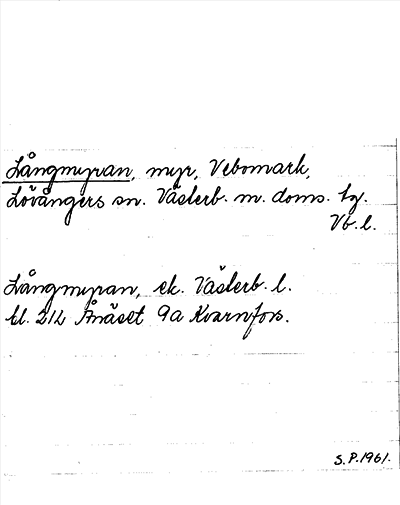 Långmyran, myr, Vebomark,
Lövångers sn. Västerb. m. doms. tg.
Vb. l.
Långmyran, ek. Västerb. l.
bl. 212 Ånäset 9a Kvarnfors.
S.P. 1961.